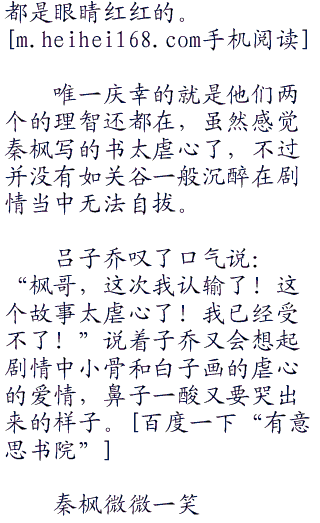 都是眼睛红红的。
[m.heihei168.com手机阅读]
唯一庆幸的就是他们两
个的理智还都在，虽然感觉
秦枫写的书太虐心了，不过
并没有如关谷一般沉醉在剧
情当中无法自拔。
吕子乔叹了口气说：
“枫哥，这次我认输了！这
个故事太虐心了！我已经受
不了！”说着子乔又会想起
剧情中小骨和白子画的虐心
的爱情，鼻子一酸又要哭出
来的样子。[百度一下“有意
思书院”]
秦枫微微一笑